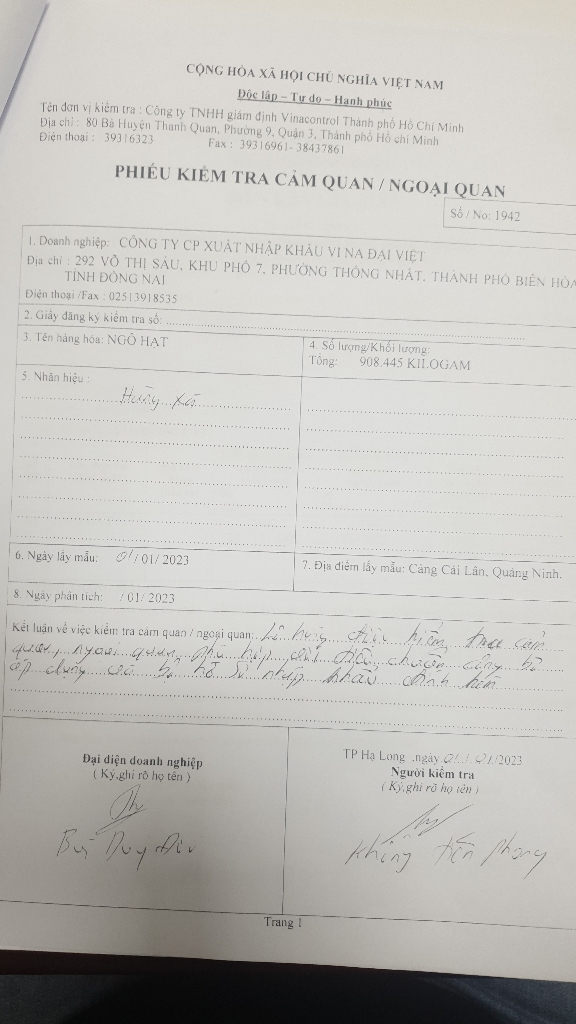 CỘNG HÒA XÃ HỘI CHỦ NGHĨA VIỆT NAM
Độc lập – Tự do – Hạnh phúc
Tên đơn vị kiểm tra : Công ty TNHH giám định Vinacontrol Thành phố Hồ Chí Minh
Địa chỉ : 80 Bà Huyện Thanh Quan, Phường 9, Quận 3, Thành phố Hồ chí Minh
Điện thoại : 39316323 Fax : 39316961- 38437861
PHIẾU KIỂM TRA CẢM QUAN / NGOẠI QUAN
Số / No: 1942
1. Doanh nghiệp: CÔNG TY CP XUẤT NHẬP KHẨU VI NA ĐẠI VIỆT
Địa chỉ : 292 VÕ THỊ SÁU, KHU PHỐ 7, PHƯỜNG THỐNG NHẤT, THÀNH PHỐ BIÊN HÒA
TỈNH ĐỒNG NAI
Điện thoại /Fax : 02513918535
2. Giấy đăng ký kiểm tra số:
3. Tên hàng hóa: NGÔ HẠT
4. Số lượng/Khối lượng:
Tổng: 908.445 KILOGAM
5. Nhãn hiệu :
Hàng xá
6. Ngày lấy mẫu: 01/ 01/ 2023
7. Địa điểm lấy mẫu: Cảng Cái Lân, Quảng Ninh.
8. Ngày phân tích: / 01/ 2023
Kết luận về việc kiểm tra cảm quan / ngoại quan: Lô hàng được kiểm tra cảm
quan, ngoại quan phù hợp với tiêu chuẩn công bố
áp dụng và bộ hồ sơ nhập khẩu đính kèm
Đại diện doanh nghiệp
( Ký,ghi rõ họ tên )
TP Hạ Long ,ngày 01/ 01/2023
Người kiểm tra
( Ký,ghi rõ họ tên )
Bùi Duy
Khổng Tiến Phong
Trang 1